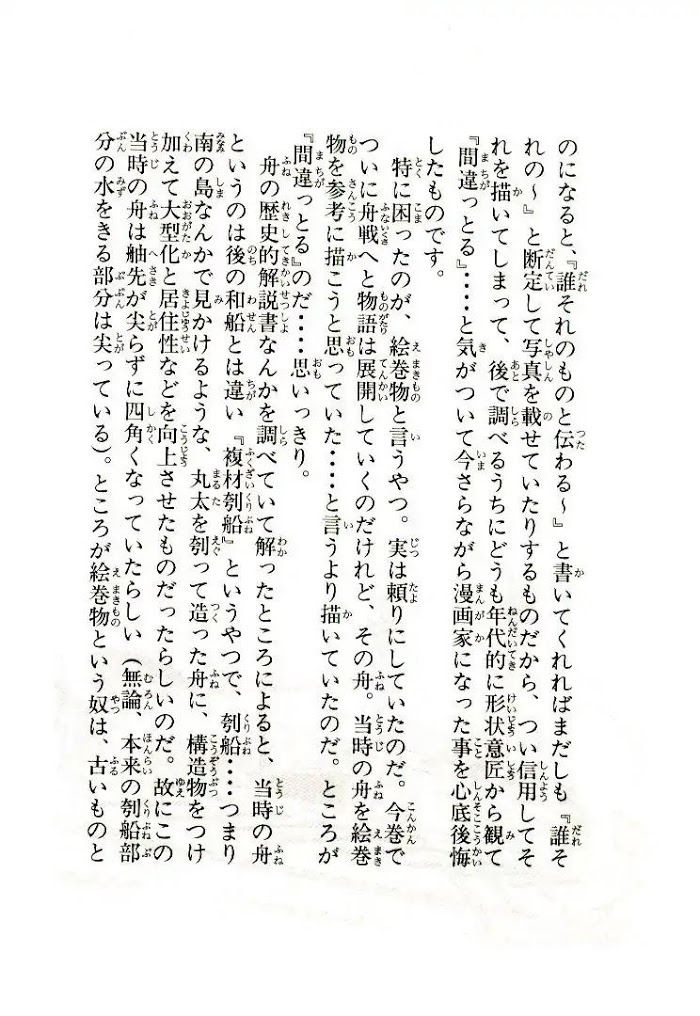 のになると、『誰それのものと伝わる～』と書いてくれればまだしも『誰そ
れの～』と断定して写真を載せていたりするものだから、つい信用してそ
れを描いてしまって、後で調べるうちにどうも年代的に形状意匠から観て
『間違っとる』・・・・と気がついて今さらながら漫画家になった事を心底後悔
したものです。
特に困ったのが、絵巻物と言うやつ。実は頼りにしていたのだ。今巻で
ついに舟戦へと物語は展開していくのだけれど、その舟。当時の舟を絵巻
物を参考に描こうと思っていた・・・・と言うより描いていたのだ。ところが
『間違っとる』のだ・・・・思いっきり。
舟の歴史的解説書なんかを調べていて解ったところによると、当時の舟
というのは後の和船とは違い『複材刳船』というやつで、刳船・・・・つまり
南の島なんかで見かけるような、丸太を刳って造った舟に、構造物をつけ
加えて大型化と居住性などを向上させたものだったらしいのだ。故にこの
当時の舟は舳先が尖らずに四角くなっていたらしい（無論、本来の刳船部
分の水をきる部分は尖っている）。ところが絵巻物という奴は、古いものと